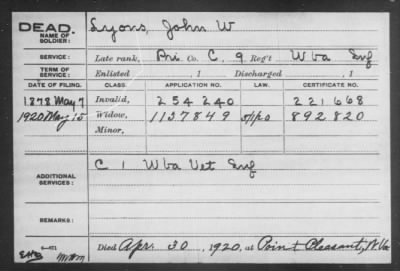 DEAD.
NAME OF SOLDIER: Lyons, John W
SERVICE: Late rank, Pri. Co. C, 9 Reg't W Va Inf
TERM OF SERVICE: Enlisted , 1 Discharged , 1
DATE OF FILING. CLASS. APPLICATION NO. LAW. CERTIFICATE NO.
1878 May 7 Invalid, 254 240 221668
1920 May 15 Widow, 1157849 892820
Minor,
ADDITIONAL SERVICES: C 1 W Va Vet Inf
REMARKS:
Died Apr. 30, 1920, at Point Pleasant, W.Va